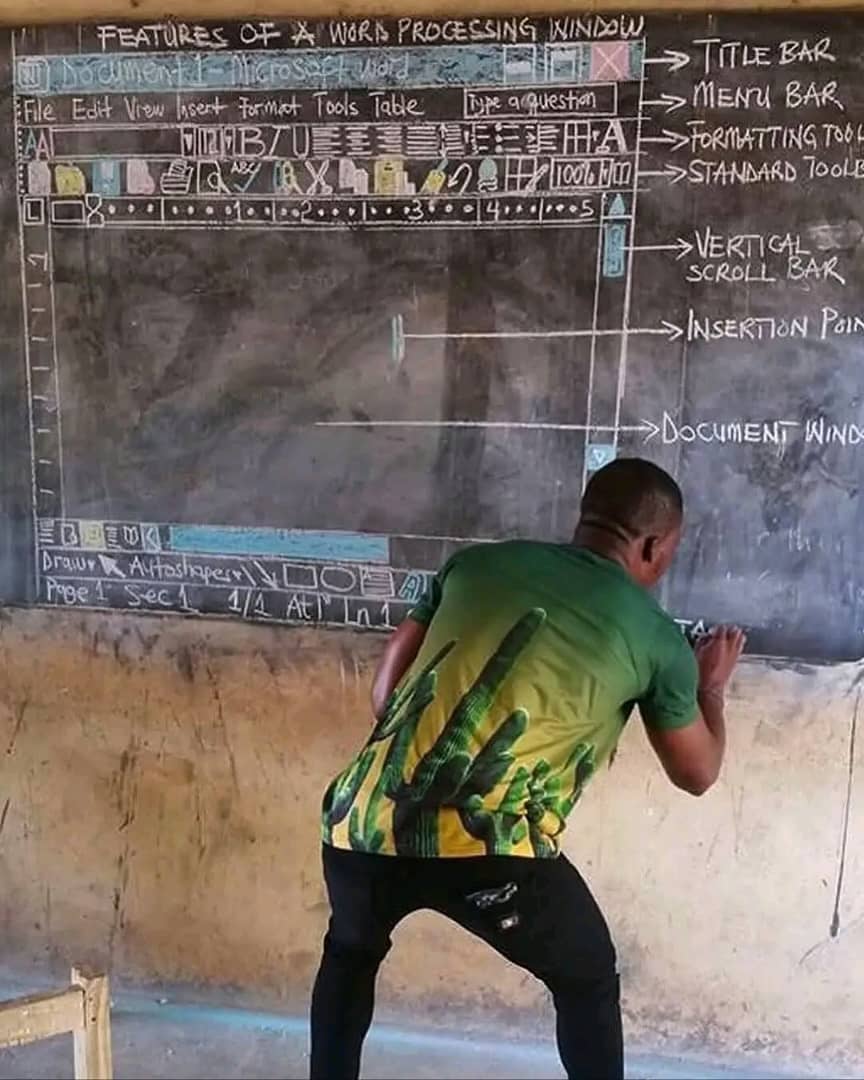 FEATURES OF A WORD PROCESSING WINDOW
W Document 1 - Microsoft word
TITLE BAR
File Edit View Insert Format Tools Table Type a question
MENU BAR
AA B I U A
FORMATTING TOOL
ABC 100%
STANDARD TOOLB
L 8 1 2 3 4 5
VERTICAL
SCROLL BAR
INSERTION POIN
DOCUMENT WINDO
Draw Autoshapes A
Page 1 Sec 1 1/1 At 1" ln 1
TA